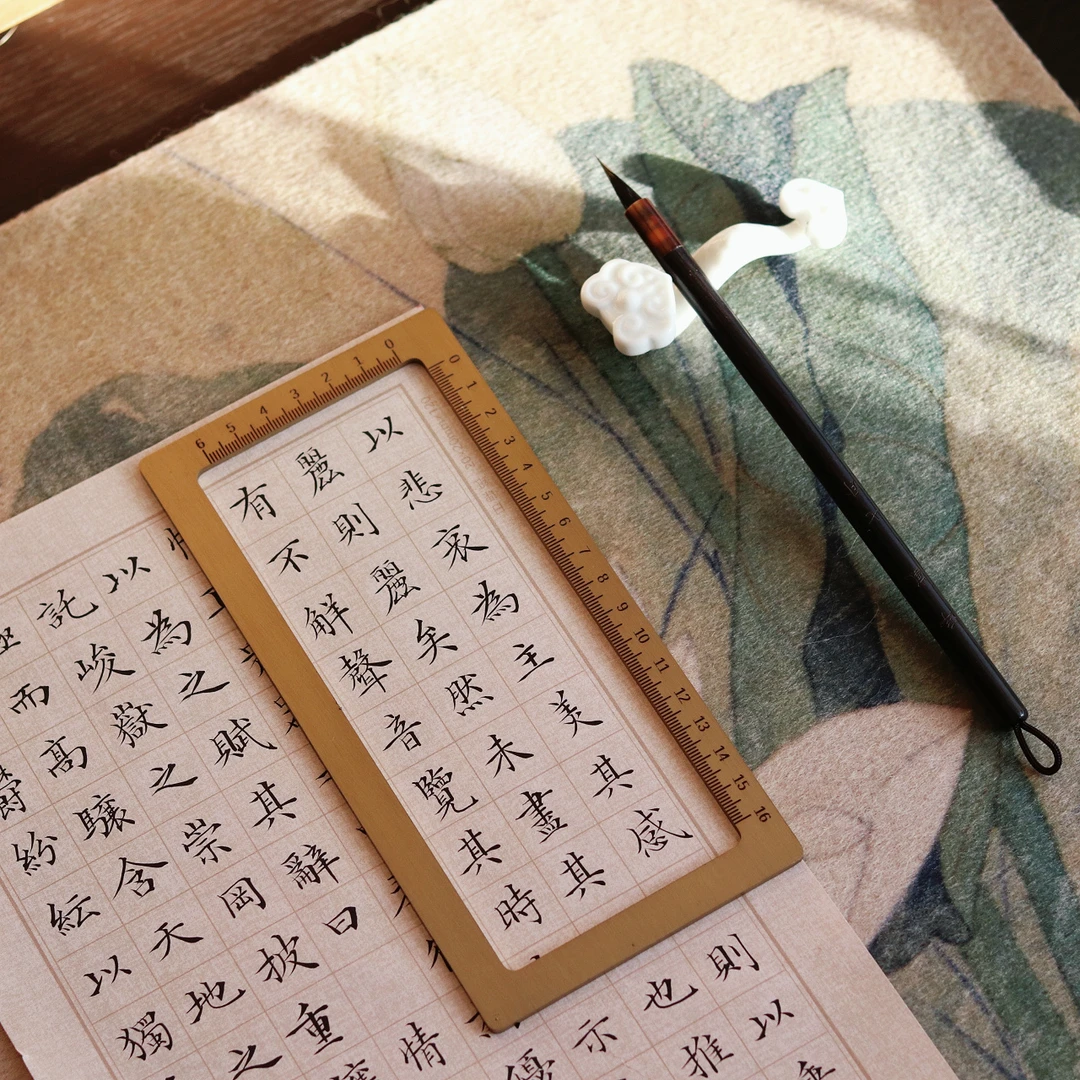 以悲哀為主美其感則以垂
麗則麗矣然未盡其也推
有不解聲音覽其時示
優
情
以為之賦其辭曰
託峻嶽之崇岡披重
而高驤含天地之
鬱紛紜以獨
0 1 2 3 4 5 6
0 1 2 3 4 5 6 7 8 9 10 11 12 13 14 15 16